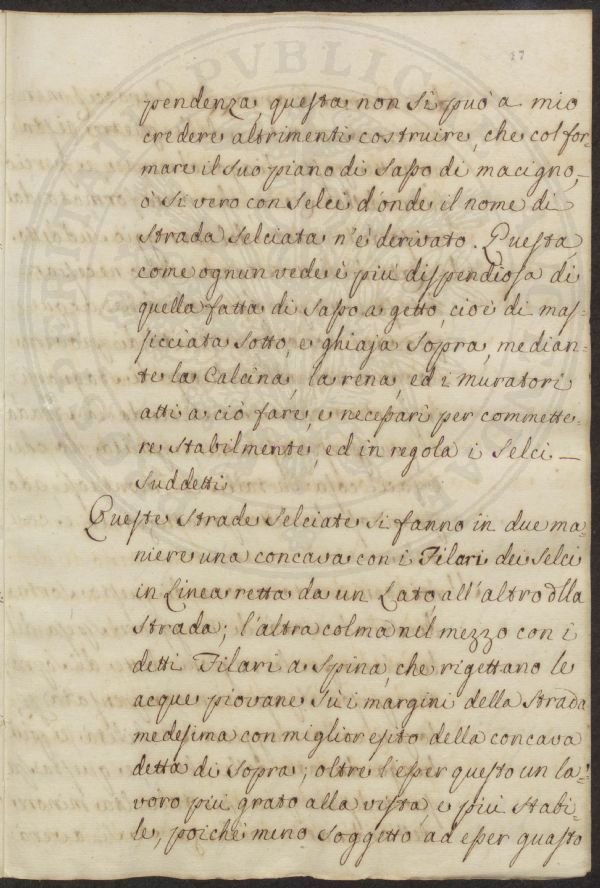 37
pendenza, questa non si può a mio
credere altrimenti costruire, che col for-
mare il suo piano di sasso di macigno,
ò sì vero con Selci d'onde il nome di
Strada Selciata n'è derivato. Questa,
come ognun vede è più dispendiosa di
quella fatta di sasso a getto, cioè di mas-
sicciata sotto, e ghiaja sopra, median-
te la Calcina, la rena, ed i muratori
atti a ciò fare, e necessari per commette-
re stabilmente, ed in regola i Selci —
suddetti.
Queste strade Selciate si fanno in due ma-
niere una concava con i Filari dei Selci
in Linea retta da un Lato all'altro dlla
strada; l'altra colma nel mezzo con i
detti Filari a Spina, che rigettano le
acque piovane sù i margini della strada
medesima con miglior esito della concava
detta di sopra; oltre l'esser questo un la-
voro più grato alla vista, e più stabi-
le, poichè meno soggetto ad esser guasto